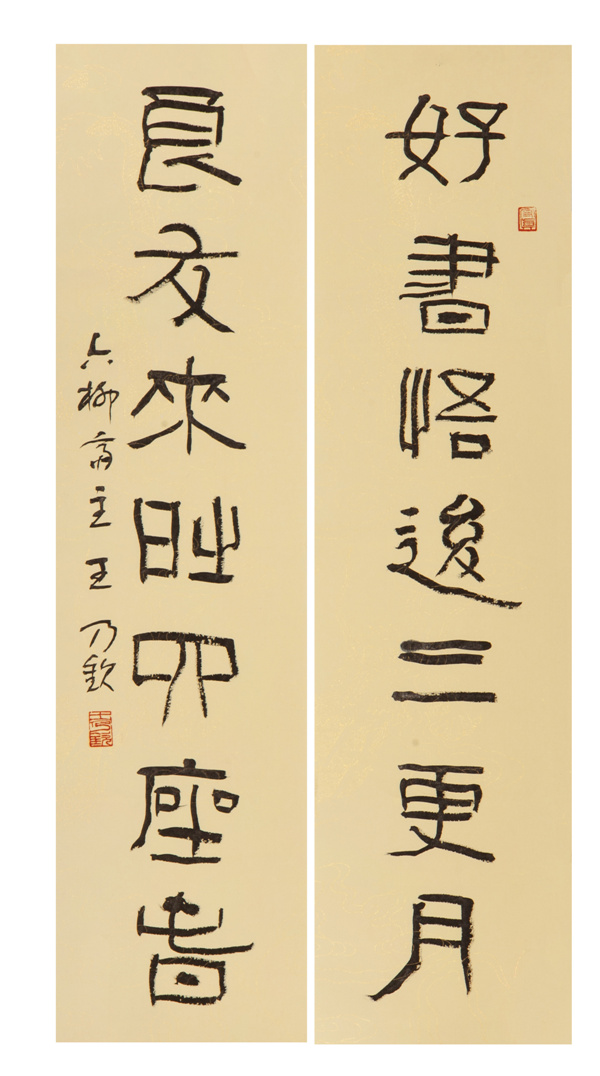 好書悟後三更月
良友來時四座春
六柳斋主王乃钦